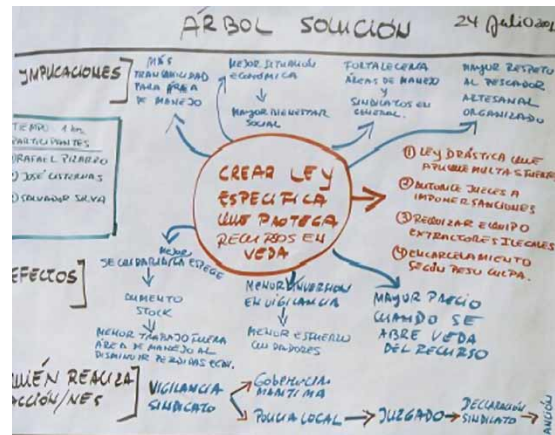 ÁRBOL SOLUCIÓN
24 Julio
IMPLICACIONES
MÁS
TRANQUILIDAD
PARA ÁREA
DE MANEJO
MEJOR SITUACIÓN
ECONÓMICA
MAYOR BIENESTAR
SOCIAL
FORTALECERÁ
ÁREAS DE MANEJO
Y
SINDICATOS EN
GENERAL.
MAYOR RESPETO
AL PESCADOR
ARTESANAL
ORGANIZADO
TIEMPO 1 hr.
PARTICIPANTES
RAFAEL PIZARRO
JOSÉ CISTERNAS
SALVADOR SILVA
CREAR LEY
ESPECÍFICA
QUE PROTEGA
RECURSOS EN
VEDA
① LEY DRÁSTICA QUE
APLIQUE MULTAS
② AUTORICE JUECES A
IMPONER SANCIONES
③ REQUIZAR EQUIPO
EXTRACTORES ILEGALES
④ ENCARCELAMIENTO
SEGÚN PESO CULPA.
EFECTOS
MEJOR
LA ESPECE
AUMENTO
STOCK
MENOR TRABAJO FUERA
ÁREA DE MANEJO AL
DISMINUIR PÉRDIDAS ECON.
MENOR INVERSIÓN
EN VIGILANCIA
MENOR ESFUERZO
CUIDADORES
MAYOR PRECIO
CUANDO SE
ABRE VEDA
DEL RECURSO
QUIÉN REALIZA
ACCIÓN/NES
VIGILANCIA
SINDICATO
GOBERNACIÓN
MARÍTIMA
POLICIA LOCAL
JUZGADO
DECLARACIÓN
SINDICATO